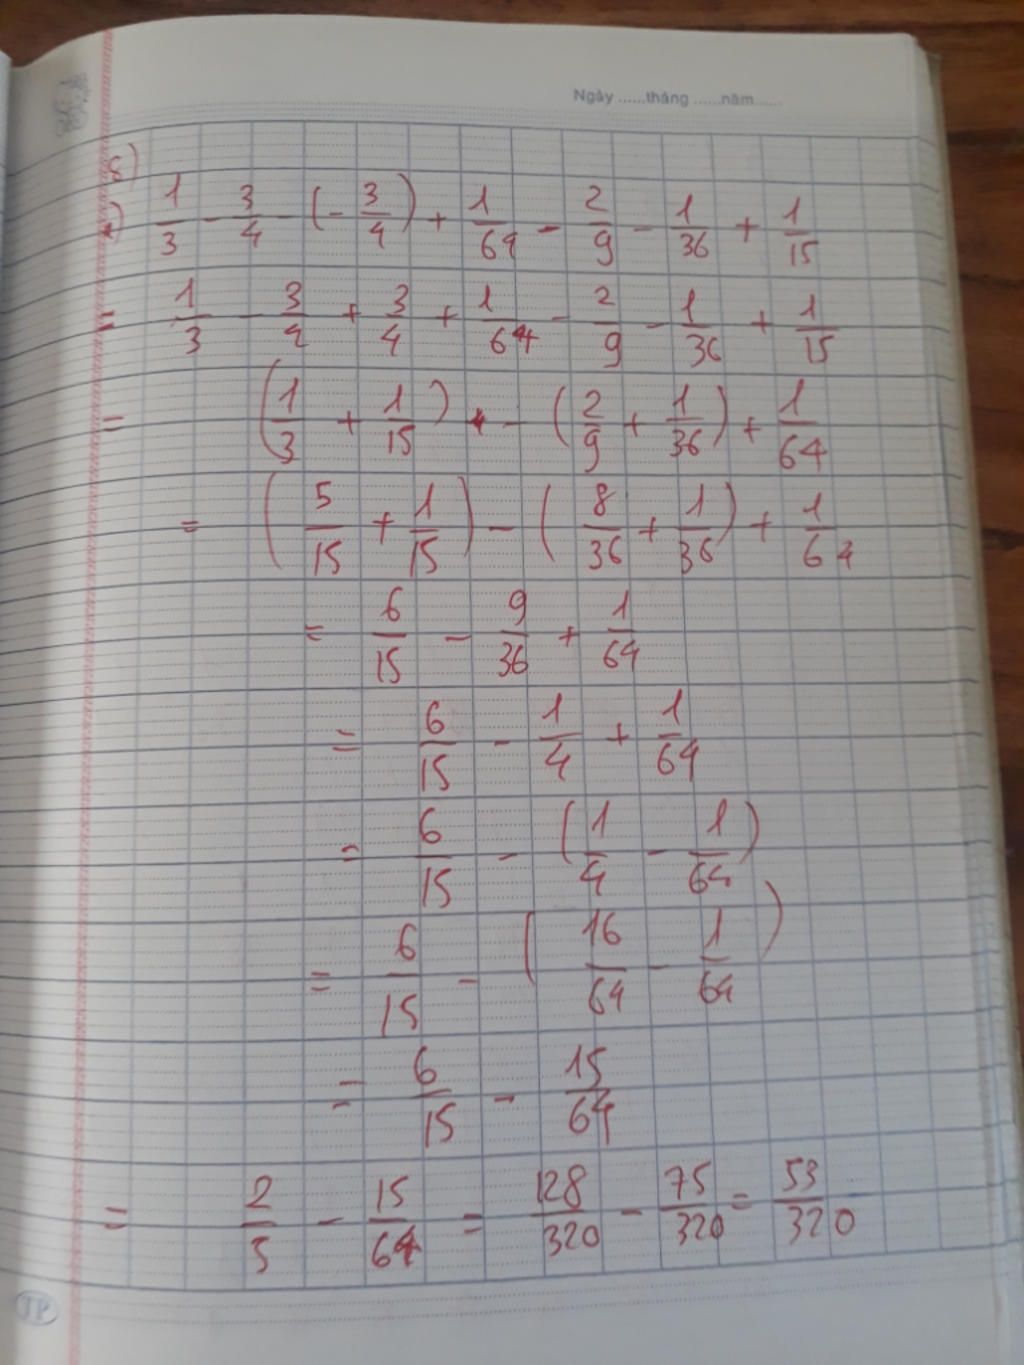 Ngày ......tháng ......năm......
8)
1/3 - 3/4 - (- 3/4) + 1/64 - 2/9 - 1/36 + 1/15
= 1/3 - 3/4 + 3/4 + 1/64 - 2/9 - 1/36 + 1/15
= (1/3 + 1/15) - (2/9 + 1/36) + 1/64
= (5/15 + 1/15) - (8/36 + 1/36) + 1/64
= 6/15 - 9/36 + 1/64
= 6/15 - 1/4 + 1/64
= 6/15 - (1/4 - 1/64)
= 6/15 - (16/64 - 1/64)
= 6/15 - 15/64
= 2/5 - 15/64 = 128/320 - 75/320 = 53/320
TP